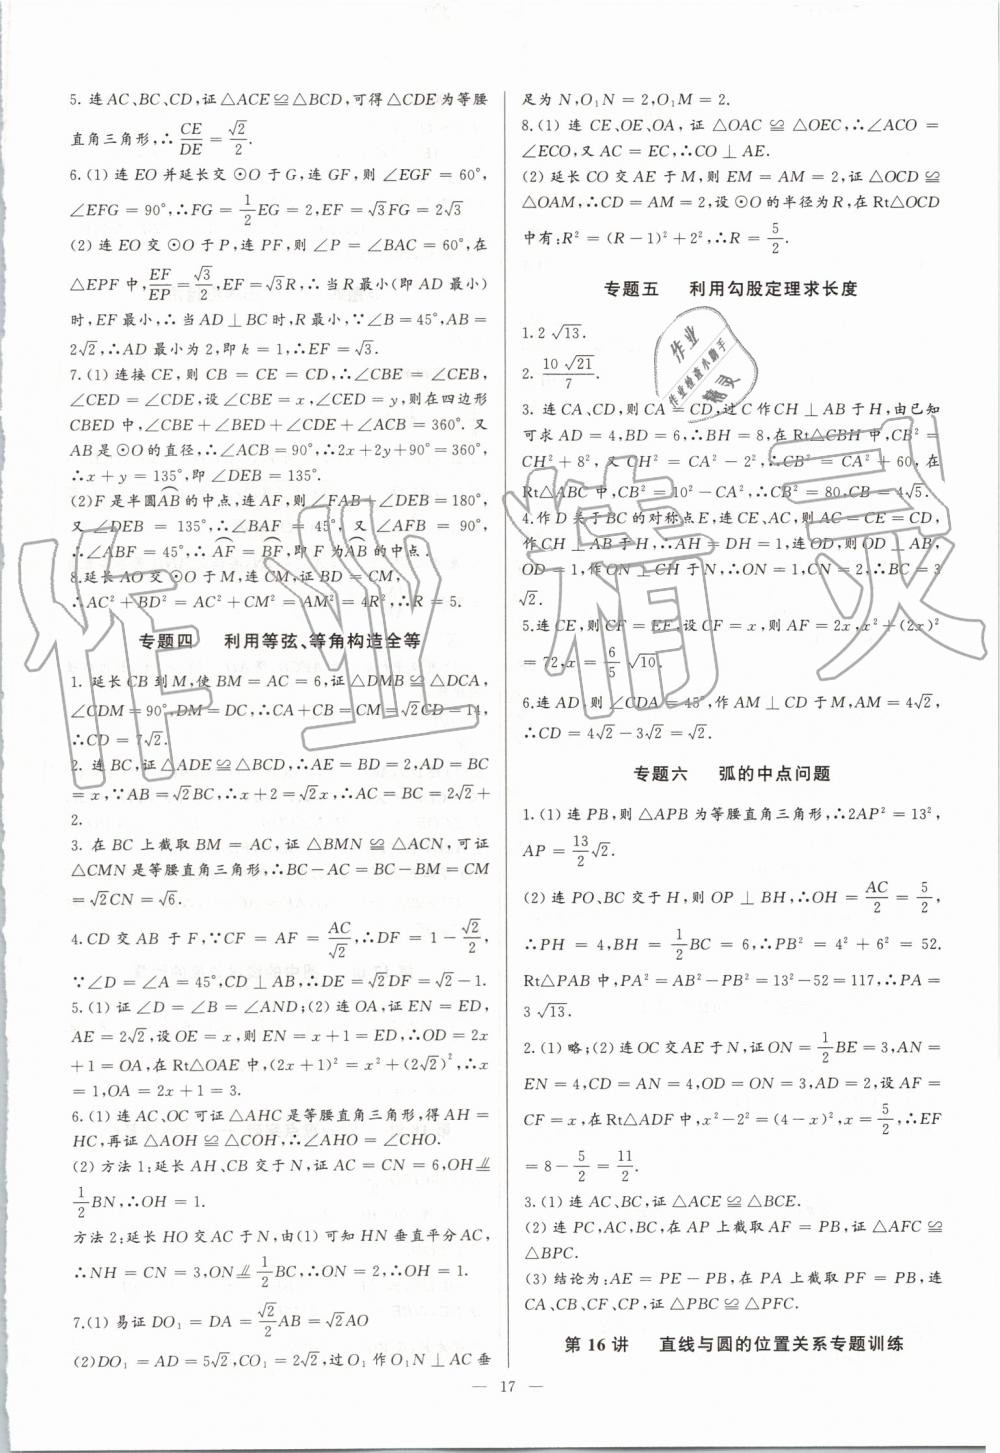 5. 连 AC、BC、CD,证△ACE≌△BCD,可得△CDE 为等腰
直角三角形,∴CE/DE=√2/2.
6.(1) 连 EO 并延长交 ⊙O 于 G,连 GF,则 ∠EGF = 60°,
∠EFG = 90°,∴FG = 1/2 EG = 2,EF = √3FG = 2√3
(2) 连 EO 交 ⊙O 于 P,连 PF,则 ∠P = ∠BAC = 60°,在
△EPF 中,EF/EP = √3/2,EF = √3R,∴当 R 最小(即 AD 最小)
时,EF 最小,∴当 AD ⊥ BC 时,R 最小,∵∠B = 45°,AB =
2√2,∴AD 最小为 2,即 k = 1,∴EF = √3.
7.(1) 连接 CE,则 CB = CE = CD,∴∠CBE = ∠CEB,
∠CED = ∠CDE,设 ∠CBE = x,∠CED = y,则在四边形
CBED 中,∠CBE + ∠BED + ∠CDE + ∠ACB = 360°. 又
AB 是 ⊙O 的直径,∴∠ACB = 90°,∴2x + 2y + 90° = 360°,
∴x + y = 135°,即 ∠DEB = 135°.
(2)F 是半圆AB的中点,连 AF,则 ∠FAB + ∠DEB = 180°,
又 ∠DEB = 135°,∴∠BAF = 45°,又 ∠AFB = 90°,
∴∠ABF = 45°,∴AF = BF,即 F 为AB的中点.
8.延长 AO 交 ⊙O 于 M,连 CM,证 BD = CM,
∴AC² + BD² = AC² + CM² = AM² = 4R²,∴R = 5.
专题四 利用等弦、等角构造全等
1. 延长 CB 到 M,使 BM = AC = 6,证 △DMB ≌ △DCA,
∠CDM = 90°,DM = DC,∴CA + CB = CM = √2CD = 14,
∴CD = 7√2.
2. 连 BC,证 △ADE ≌ △BCD,∴AE = BD = 2,AD = BC
= x,∵AB = √2BC,∴x + 2 = √2x,∴AC = BC = 2√2 +
2.
3. 在 BC 上截取 BM = AC,证 △BMN ≌ △ACN,可证
△CMN 是等腰直角三角形,∴BC − AC = BC − BM = CM
= √2CN = √6.
4.CD 交 AB 于 F,∵CF = AF = AC/√2,∴DF = 1 − √2/2,
∵∠D = ∠A = 45°,CD ⊥ AB,∴BD = √2DF = √2 − 1.
5.(1) 证 ∠D = ∠B = ∠AND;(2) 连 OA,证 EN = ED,
AE = 2√2,设 OE = x,则 EN = x + 1 = ED,∴OD = 2x
+ 1 = OA,在 Rt△OAE 中,(2x + 1)² = x² + (2√2)²,∴x =
1,OA = 2x + 1 = 3.
6.(1) 连 AC、OC 可证 △AHC 是等腰直角三角形,得 AH =
HC,再证 △AOH ≌ △COH,∴∠AHO = ∠CHO.
(2) 方法 1:延长 AH、CB 交于 N,证 AC = CN = 6,OH⫽
1/2 BN,∴OH = 1.
方法 2:延长 HO 交 AC 于 N,由(1) 可知 HN 垂直平分 AC,
∴NH = CN = 3,ON⫽1/2 BC,∴ON = 2,∴OH = 1.
7.(1) 易证 DO₁ = DA = √2/2 AB = √2AO
(2)DO₁ = AD = 5√2,CO₁ = 2,过 O₁ 作 O₁N ⊥ AC 垂
足为 N,O₁N = 2,O₁M = 2.
8.(1) 连 CE、OE、OA,证 △OAC ≌ △OEC,∴∠ACO =
∠ECO,又 AC = EC,∴CO ⊥ AE.
(2) 延长 CO 交 AE 于 M,则 EM = AM = 2,证 △OCD ≌
△OAM,∴CD = AM = 2,设 ⊙O 的半径为 R,在 Rt△OCD
中有:R² = (R − 1)² + 2²,∴R = 5/2.
专题五 利用勾股定理求长度
1.2√13.
2. 10√21/7.
3. 连 CA、CD,则 CA = CD,过 C 作 CH ⊥ AB 于 H,由已知
可求 AD = 4,BD = 6,∴BH = 8,在 Rt△CBH 中,CB² =
CH² + 8²,又 CH² = CA² − 2²,∴CB² = CA² + 60,在
Rt△ABC 中,CB² = 10² − CA²,∴CB² = 80,CB = 4√5.
4.作 D 关于 BC 的对称点 E,连 CE、AC,则 AC = CE = CD,
作 CH ⊥ AB 于 H,∴AH = DH = 1,连 OD,则 OD ⊥ AB,
OD = 1,作 ON ⊥ CH 于 N,∴ON = 1,CN = 2,∴BC = 3
√2.
5.连 CE,则 CF = EF,设 CF = x,则 AF = 2x,x² + (2x)²
= 72,x = 6/5 √10.
6.连 AD,则 ∠CDA = 45°,作 AM ⊥ CD 于 M,AM = 4√2,
∴CD = 4√2 − 3√2 = √2.
专题六 弧的中点问题
1.(1) 连 PB,则 △APB 为等腰直角三角形,∴2AP² = 13²,
AP = 13/2 √2.
(2) 连 PO、BC 交于 H,则 OP ⊥ BH,∴OH = AC/2 = 5/2,
∴PH = 4,BH = 1/2 BC = 6,∴PB² = 4² + 6² = 52.
Rt△PAB 中,PA² = AB² − PB² = 13² − 52 = 117,∴PA =
3√13.
2.(1) 略;(2) 连 OC 交 AE 于 N,证 ON = 1/2 BE = 3,AN =
EN = 4,CD = AN = 4,OD = ON = 3,AD = 2,设 AF =
CF = x,在 Rt△ADF 中,x² − 2² = (4 − x)²,x = 5/2,∴EF
= 8 − 5/2 = 11/2.
3.(1) 连 AC、BC,证 △ACE ≌ △BCE.
(2) 连 PC、AC、BC,在 AP 上截取 AF = PB,证 △AFC ≌
△BPC.
(3) 结论为:AE = PE − PB,在 PA 上截取 PF = PB,连
CA、CB、CF、CP,证 △PBC ≌ △PFC.
第 16 讲 直线与圆的位置关系专题训练
— 17 —
作业
作业检查小助手
精灵
作业精灵